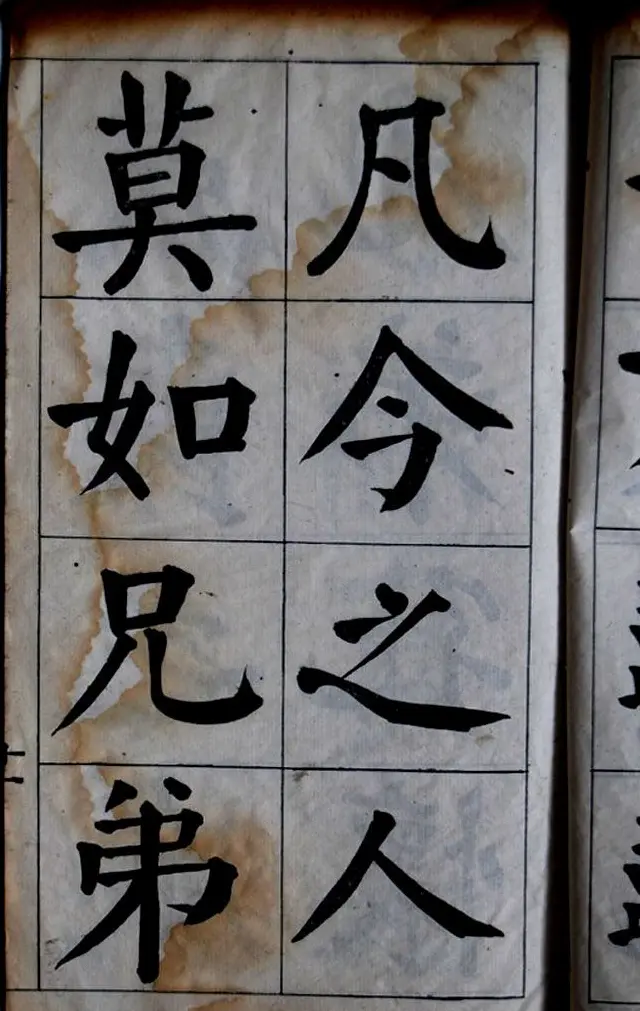 凡今之人
莫如兄弟